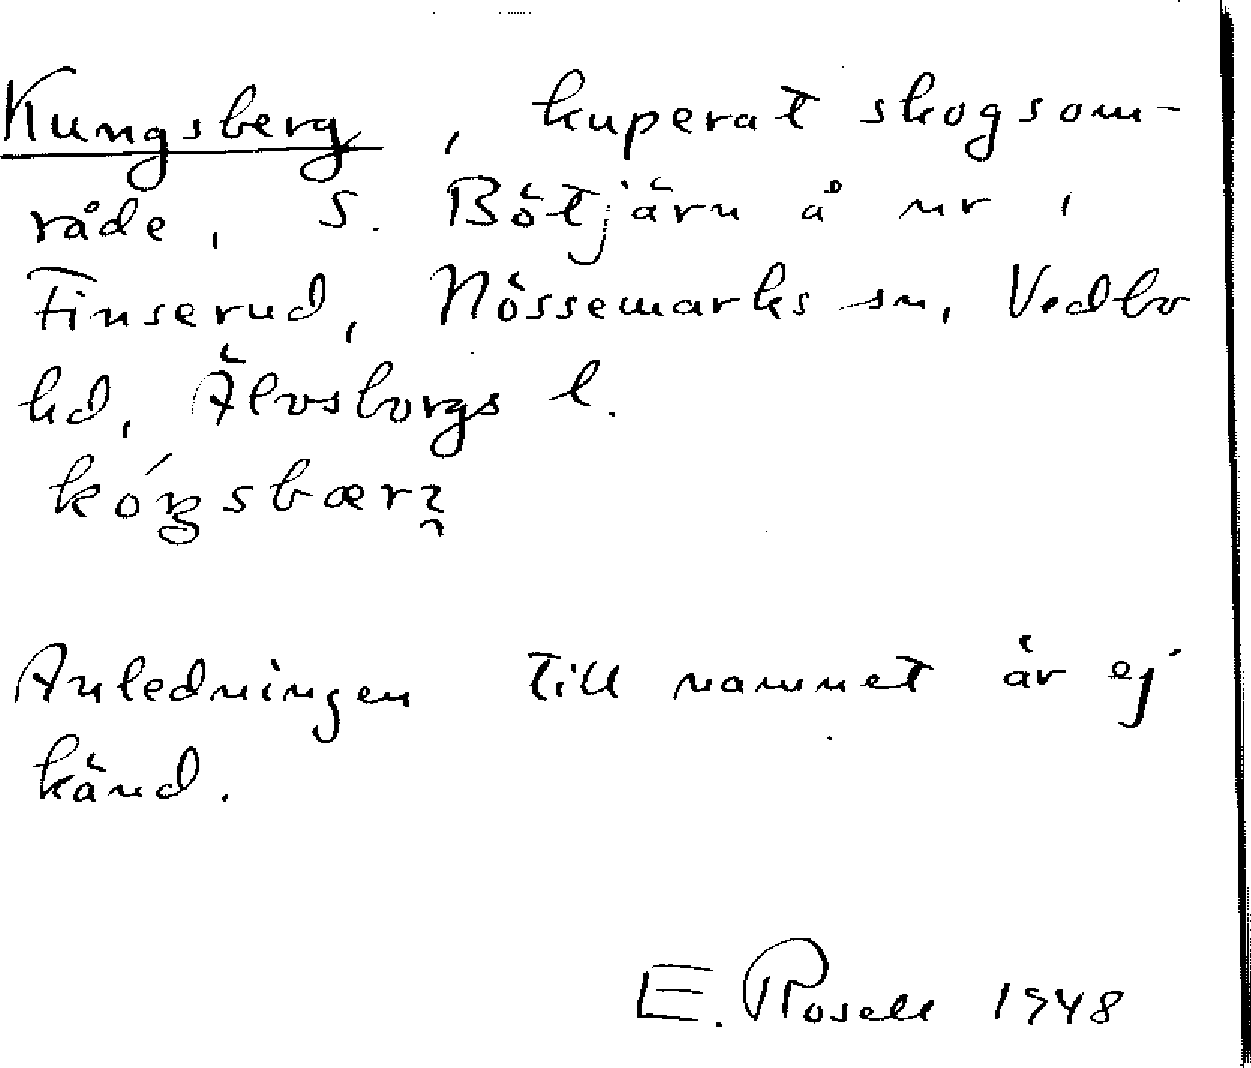 Kungsberg, kuperat skogsom-
råde, S. Bötjärn å nr 1
Finserud, Nössemarks sn, Vedbo
hd, Älvsborgs l.

Anledningen till namnet är ej
känd.
E. Rosell 1948